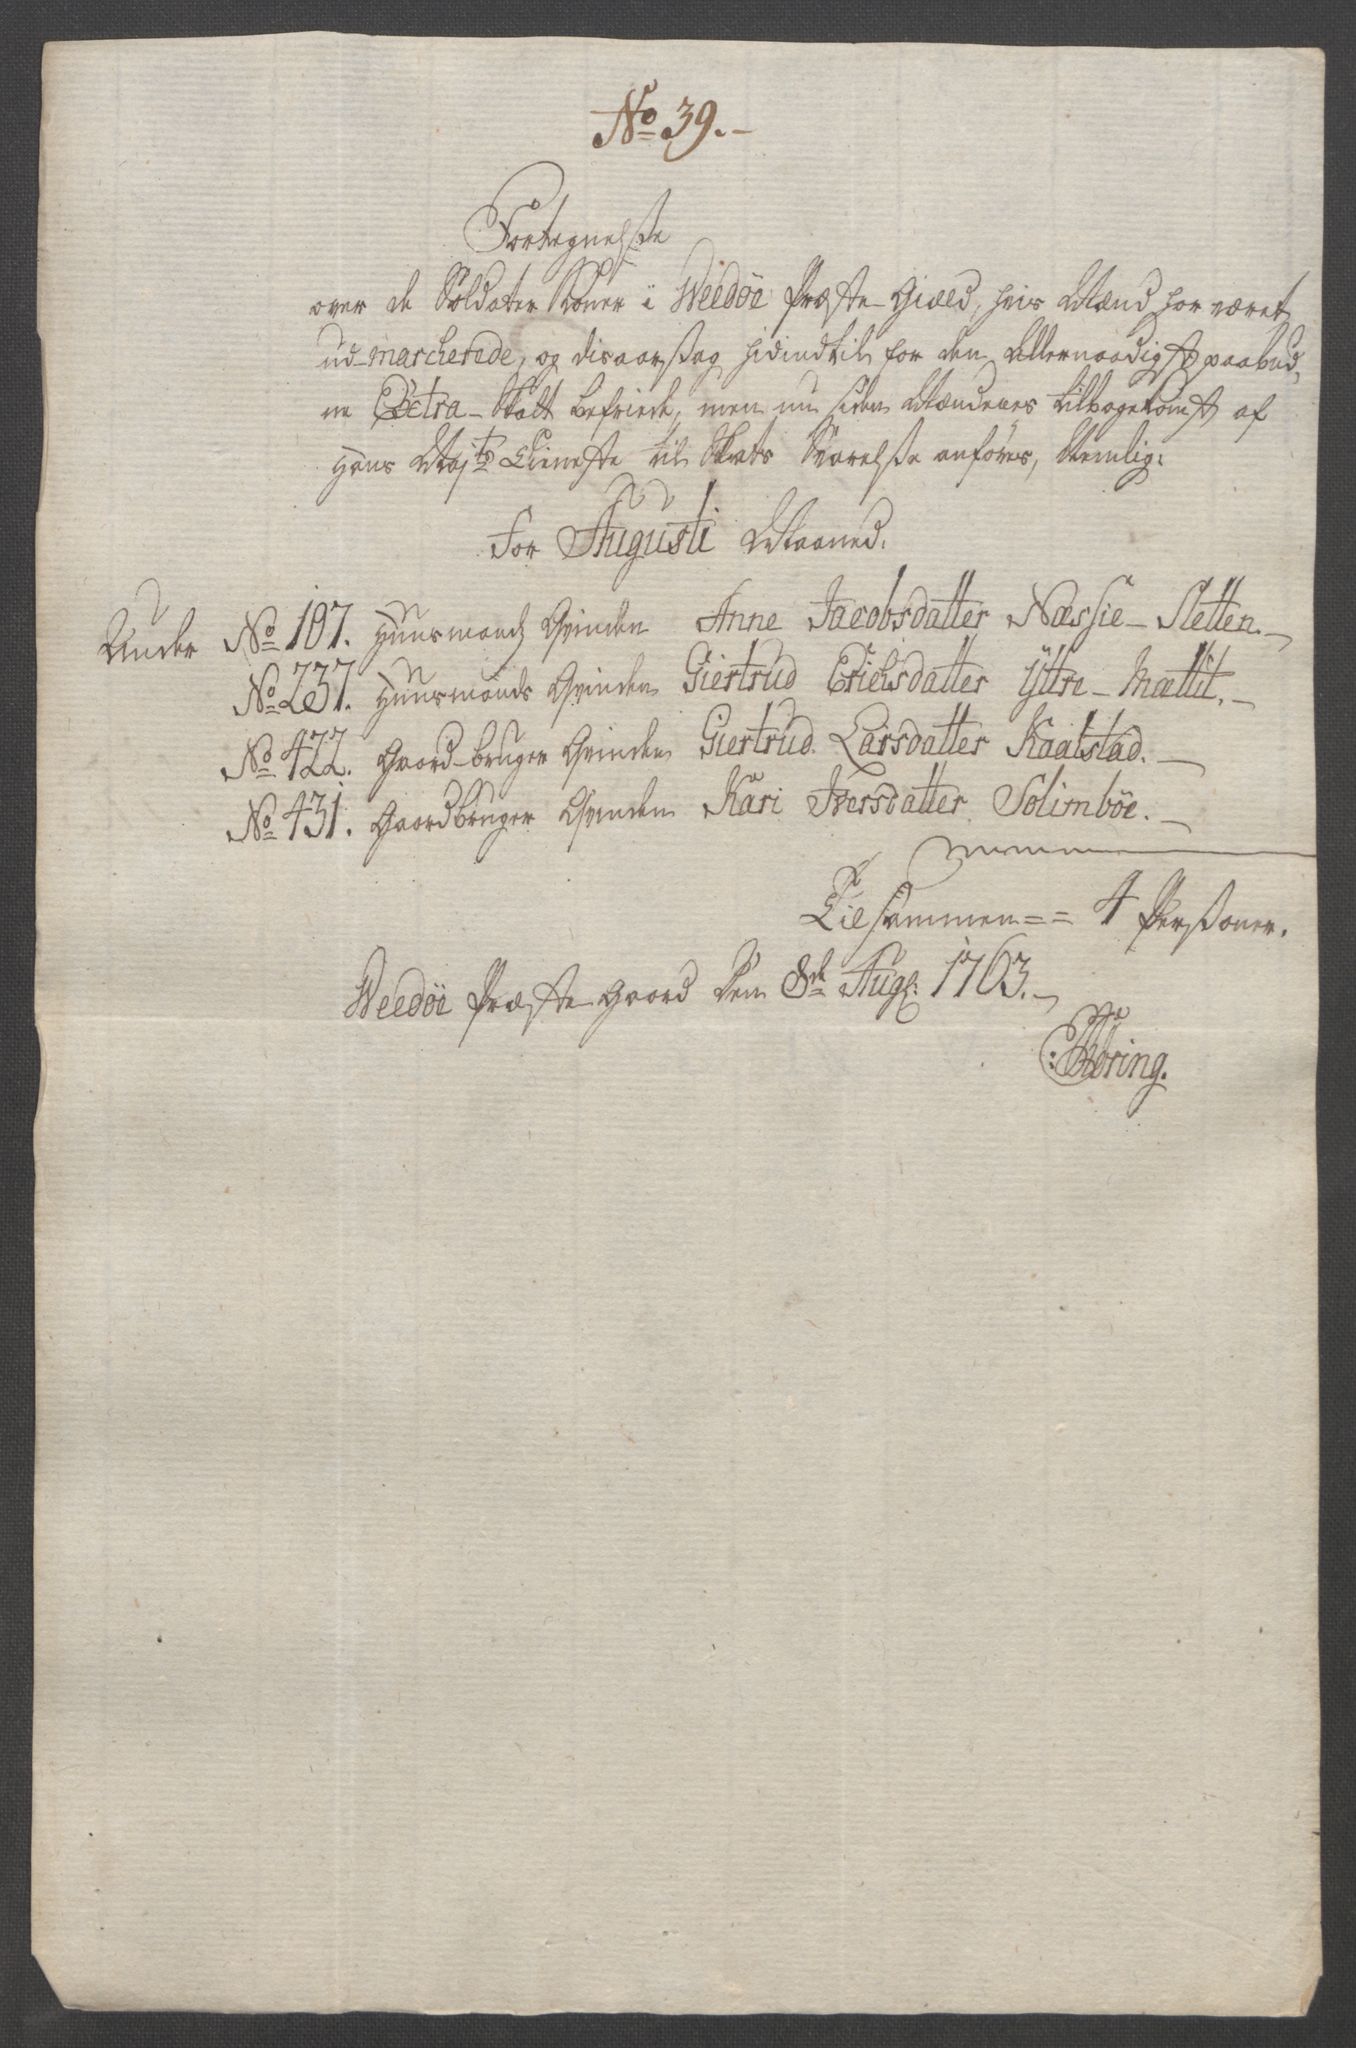 No 39.-
Fortegnelsse
over de Soldater Koner i Weedöe Præste-Gield, hvis Mænd har været
ud-marcherede, og disaarsag hidindtil for den Allernaadigst paabud,
ne Extra-Skatt befriede, men nu siden Mændenes tilbagekomst af
Hans Majts Tieneste til Skats Svarelsse anföres, Nemlig:
For Augusti Maaned.
Under No 107. Huusmands Qvinden Anne Jacobsdatter Næssie-Sletten.-
No 237. Huusmands Qvinden Giertrud Erichsdatter Yttre-Mættit.-
No 422. Gaard-bruger Qvinden Giertrud Larsdatter Kaatstad.-
No 431. Gaardbruger Qvinden Kari Iversdatter Solimböe.-
Tilsammen == 4 Perssoner.
Weedöe Præste-Gaard den 8de Aug: 1763.-
Thöring.